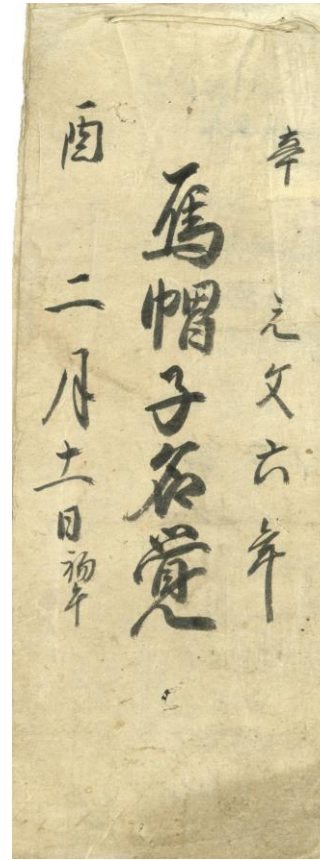 辛 元文六年
烏帽子名覚
酉 二月十一日初午